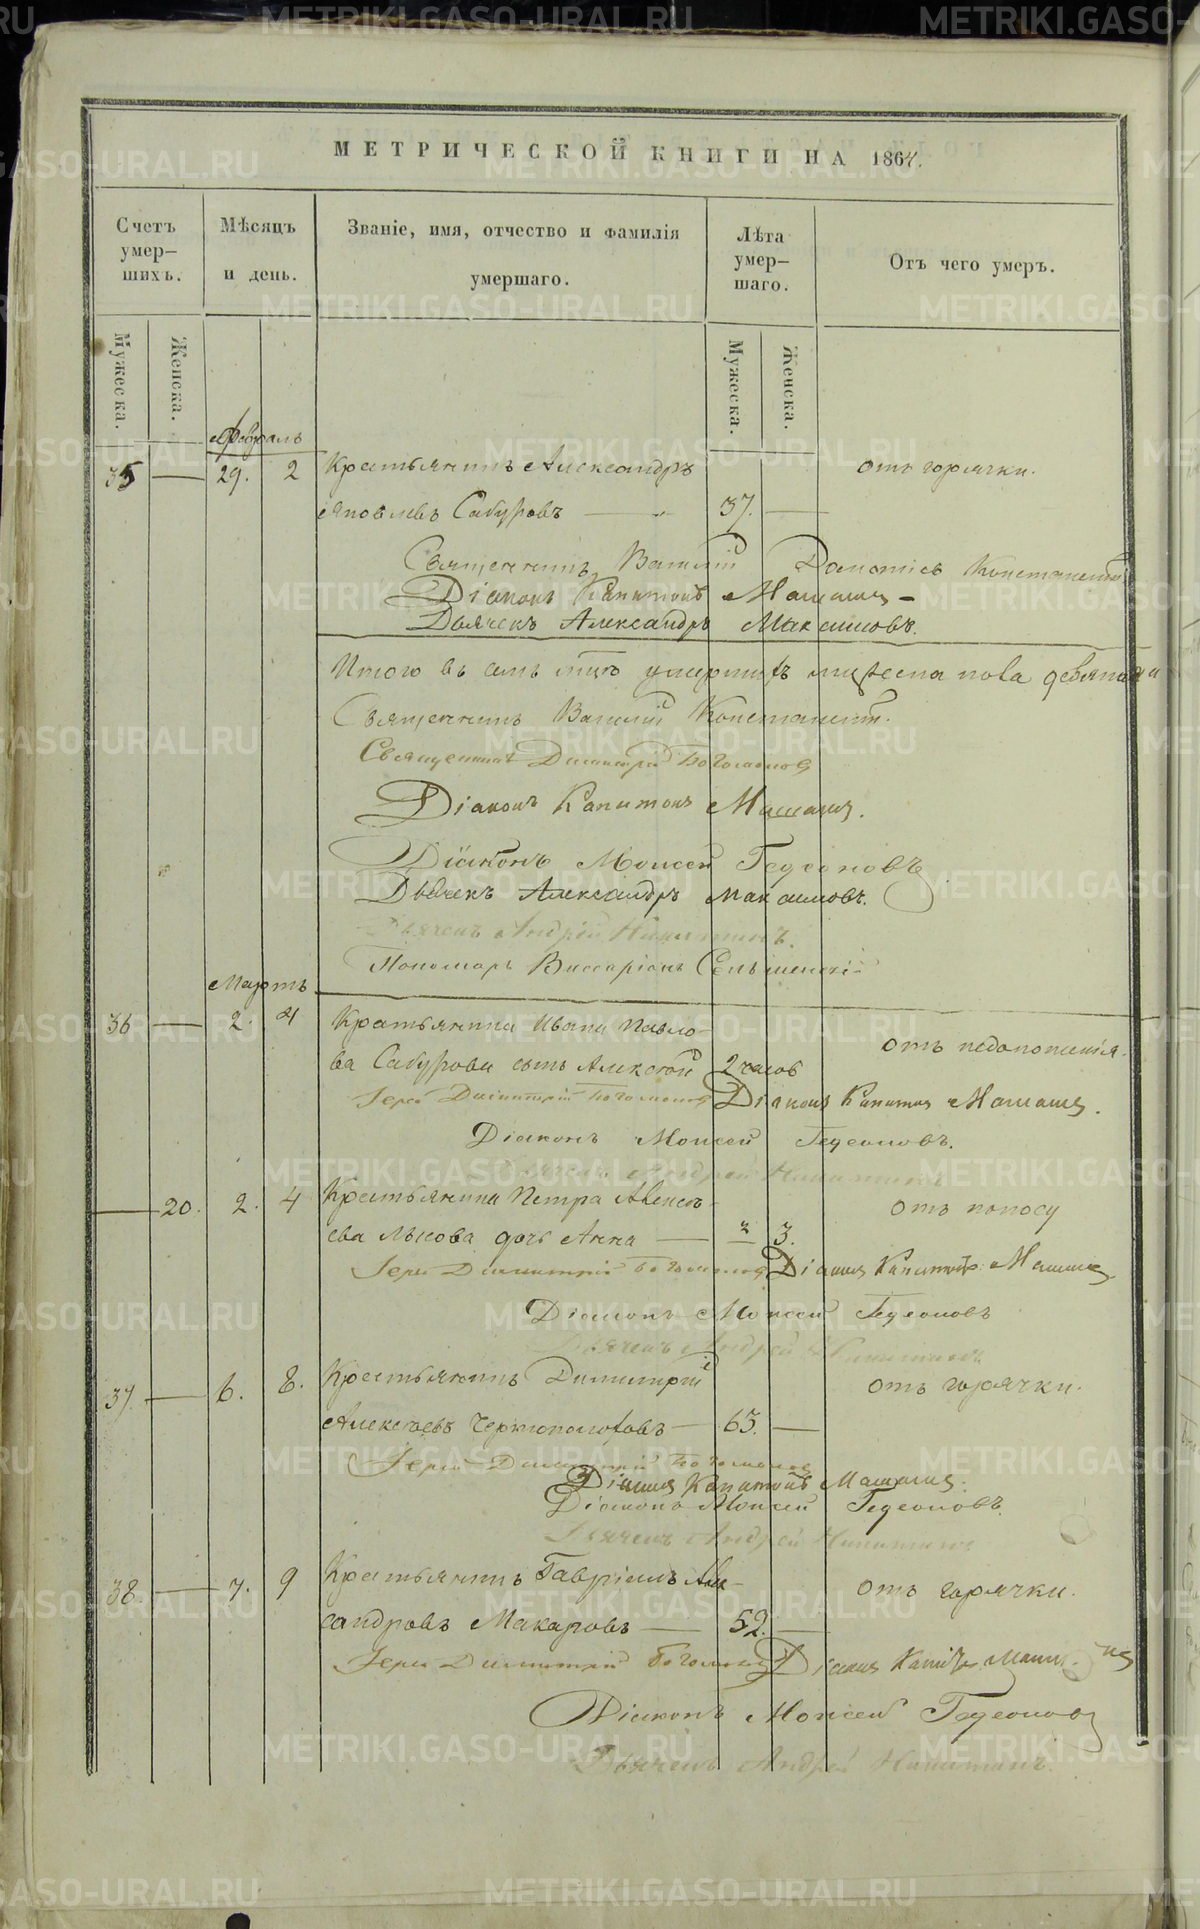 МЕТРИЧЕСКОЙ КНИГИ НА 1864.
Счетъ умер–шихъ.
Мѣсяцъ и день.
Званіе, имя, отчество и фамилія умершаго.
Лѣта умер–шаго.
Отъ чего умеръ.
Мужеска.
Женска.
Мужеска.
Женска.
Февраль
35 — 29. 2 Крестьянинъ Александръ отъ горячки.
Яковлевъ Сабуровъ — 37. —
Священникъ Василій Константи
Діаконъ Капитонъ
Дьячекъ Александръ Максимовъ.
Итого въ семъ умершихъ мужеска пола
Священникъ Василій
Священникъ Димитрій Богомоловъ
Діаконъ Капитонъ
Діаконъ Моисей Гедеоновъ
Дьячекъ Александръ Максимовъ.
Дьячекъ Андрей Никитинъ.
Пономарь Виссаріонъ
Мартъ
36 — 2. 4 Крестьянина Ивана Павло–
ва Сабурова сынъ Алексѣй 2 часов отъ недоношенія.
Іерей Димитрій Богомоловъ Діаконъ Капитонъ
Діаконъ Моисей Гедеоновъ.
Дьячекъ Андрей Никитинъ
— 20. 2. 4 Крестьянина Петра Алексѣ– отъ поносу
ева Лыкова дочь Анна — 3.
Іерей Димитрій Богомоловъ Діаконъ Капитонъ
Діаконъ Моисей Гедеоновъ
Дьячекъ Андрей Никитинъ
37. — 6. 8. Крестьянинъ Димитрій отъ горячки.
Алексѣевъ — 63. —
Іерей Димитрій Богомоловъ
Діаконъ Капитонъ
Діаконъ Моисей Гедеоновъ.
Дьячекъ Андрей Никитинъ
38. — 7. 9 Крестьянинъ Гавріилъ Але– отъ горячки.
сандровъ Макаровъ — 52. —
Іерей Димитрій Богомоловъ Діаконъ
Діаконъ Моисей Гедеоновъ
Дьячекъ Андрей Никитинъ.
METRIKI.GASO-URAL.RU